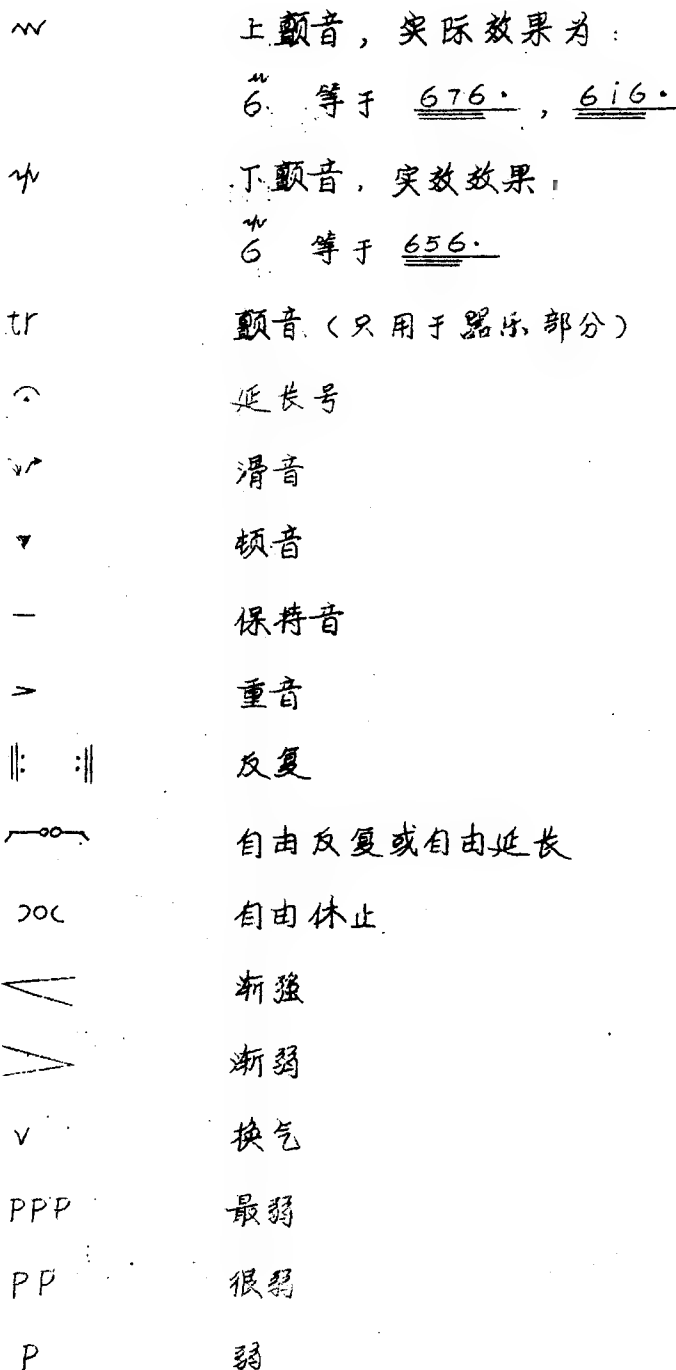 上颤音，实际效果为：
6 等于 676·，6i6·
下颤音，实效效果：
6 等于 656·
tr 颤音（只用于器乐部分）
延长号
滑音
顿音
— 保持音
> 重音
‖: :‖ 反复
自由反复或自由延长
自由休止
渐强
渐弱
V 换气
PPP 最弱
PP 很弱
P 弱